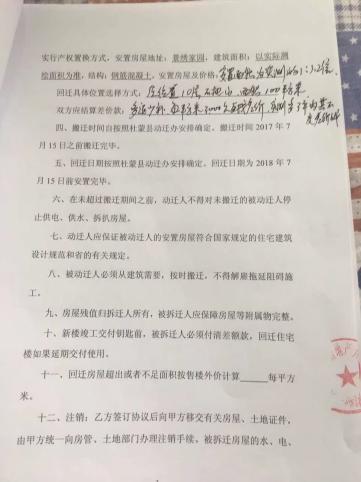 实行产权置换方式,安置房屋地址:景绣家园,建筑面积:以实际测
绘面积为准,结构:钢筋混凝土,安置房屋及价格:安置面积
回迁具体位置选择方式:
双方应结算差价款:
四、搬迁时间自按照杜蒙县动迁办安排确定。搬迁时间 2017 年 7
月 15 日之前搬迁完毕。
五、回迁日期按照杜蒙县动迁办安排确定。回迁日期为 2018 年 7
月 15 日前安置完毕。
六、在未超过搬迁期间之前,动迁人不得对未搬迁的被动迁人停
止供电、供水、拆扒房屋。
七、动迁人应保证被动迁人的安置房屋符合国家规定的住宅建筑
设计规范和省的有关规定。
八、被动迁人必须从建筑需要,按时搬迁,不得解雇拖延阻碍施
工。
九、房屋残值归拆迁人所有,被拆迁人应保障房屋等附属物完整。
十、新楼竣工交付钥匙前,被拆迁人必须付清差额款,回迁住宅
楼如果延期交付使用。
十一、回迁房屋超出或者不足面积按售楼外价计算______每平方
米。
十二、注销:乙方签订协议后向甲方移交有关房屋、土地证件,
由甲方统一向房管、土地部门办理注销手续,被拆迁房屋的水、电、